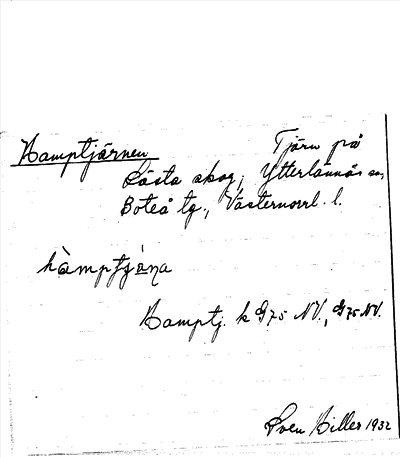 Hamptjärnen Tjärn på
Lästa skog, Ytterlännäs sn,
Boteå tg., Västernorrl. l.
hàmptjä̀ṇa
Hamptj. k G75 NV., G75 NV.
Sven Hiller 1932